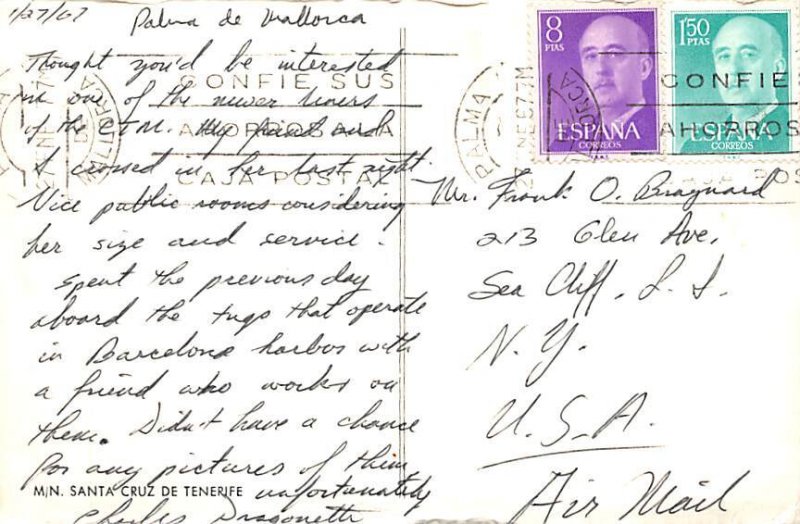 1/27/67 Palma de Mallorca
Thought you'd be interested
in one of the newer liners
of the CTM. My friend and
I crossed in her last night.
Nice public rooms considering
her size and service.
Spent the previous day
aboard the tugs that operate
in Barcelona harbor with
a friend who works on
them. Didn't have a chance
for any pictures of them,
unfortunately
Charles Dragonette
M/N. SANTA CRUZ DE TENERIFE
8
PTAS
ESPAÑA
CORREOS
1'50
PTAS
ESPAÑA
CORREOS
CONFIE SUS
AHORROS A LA
CAJA POSTAL
PALMA
MALLORCA
CONFIE
AHORROS
Mr. Frank O. Braynard
213 Glen Ave.
Sea Cliff, L. I.
N. Y.
U. S. A.
Air Mail